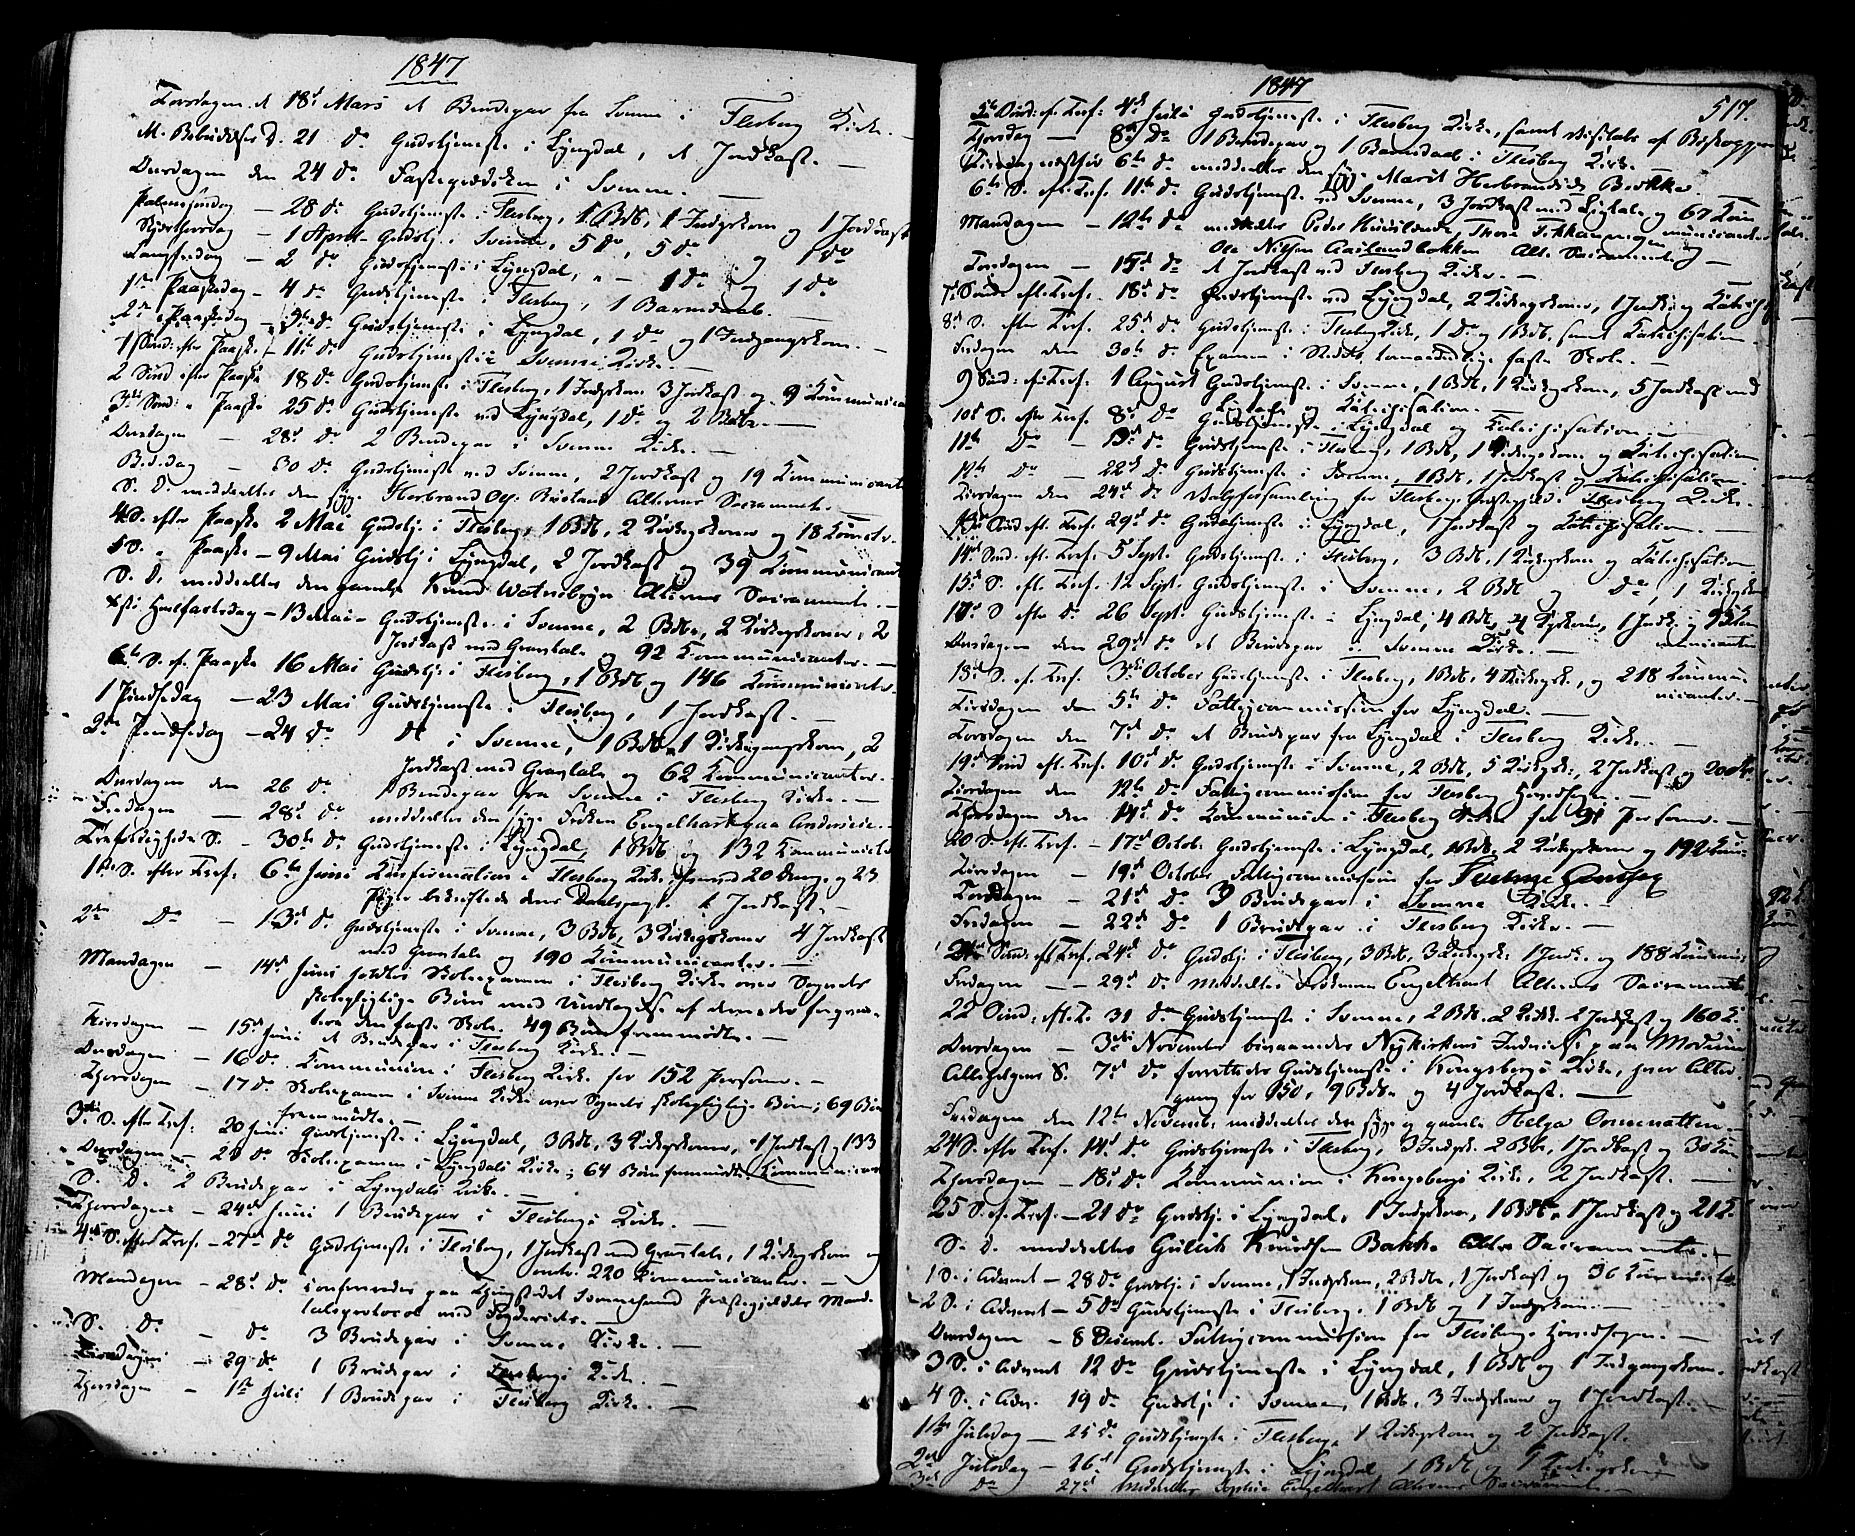 1847
Torsdagen d. 18d Mars et Brudepar fra Svenne i Flesberg Kirke. —
M. Bebudelses D. 21 Do Gudstjeneste i Lyngdal, et Jordkast. —
Onsdagen den 24 Do Fasteprædiken i Svenne. —
Palmesøndag — 28 Do Gudstjeneste i Flesberg, 1 Bdb, 1 Indgskone og 1 Jordkast
Skjærthorsdag — 1 April Gudstj. i Svenne, 5 Do, 5 Do og 1 Do
Langfredag — 2 Do Gudstjeneste i Lyngdal, " — 1 Do og 1 Do
1ste Paaskedag — 4 Do Gudstjeneste i Flesberg, 1 Barnedaab. —
2den Paaskedag — Do Gudstjeneste i Lyngdal, 1 Do og 1 Indgangskone. —
1 Sønd: efter Paaske — 11te Do Gudstjeneste i Svenne Kirke. —
2 Sønd efter Paaske 18 Do Gudstjeneste i Flesberg, 1 Indgskone 3 Jordkast og 9 Kommunican
3die Sønd: e. Paaske 25 Do Gudstjeneste ved Lyngdal, 1 Do og 2 Bdb. —
Onsdagen — 28d Do 2 Brudepar i Svenne Kirke. —
Bededag — 30 Do Gudstjeneste ved Svenne, 2 Jordkast og 19 Kommunicanter
S. D. meddeeltes den syge Herbrand Alterens Sacramente. —
4 S. efter Paaske 2 Mai Gudstj. i Flesberg, 1 Bdb, 2 Kirkegskoner og 18 Komctr.
5 S. " Paaske — 9 Mai Gudstj i Lyngdal, 2 Jordkast og 39 Kommunicant
S. D. meddeeltes den gamle Knud Alterens Sacramente. —
Kristi Himmelfartsdag — 13 Mai — Gudstjeneste i Svenne, 2 Bdb, 2 Kirkegskoner, 2
Jordkast med Gravtale og 92 Kommunicanter. —
6te S. e. Paaske 16 Mai Gudstj. i Flesberg, 1 Bdb og 146 Kommunicanter.
1 Pindsedag — 23 Mai Gudstjeneste i Flesberg, 1 Jordkast. —
2den Pindsedag — 24 Do Dt i Svenne, 1 Bdb, 1 Kirkegangskone, 2
Jordkast med Gravtale og 62 Kommunicanter. —
Onsdagen den 26 Do 1 Brudepar fra Svenne i Flesberg Kirke. —
Fredagen — 28d Do meddeeltes den syge Frøken Engelhart paa
Trefoldigheds S. — 30te Do Gudstjeneste i Lyngdal, 1 Bdb og 132 Kommunicanter
1ste S. efter Tref: 6te Juni Konfirmation i Flesberg Kirke, hvorved 20 Drenge og 23
Piger bekræftede deres Daabspagt. 1 Jordkast. —
2den Do — 13d Do Gudstjeneste i Svenne, 3 Bdb, 3 Kirkegskoner 4 Jordkast
med Gravtale og 190 Kommunicanter. —
Mandagen — 14d Juni holdtes Skoleexamen i Flesberg Kirke over Sognets
skolepligtige Børn med Undtagelse af
den faste Skole. 49 Børn fremmødte. —
Tirsdagen — 15d Juni et Brudepar i Flesberg Kirke. —
Onsdagen — 16 Do Kommunion i Flesberg Kirke for 152 Personer. —
Thorsdagen — 17 Do Skoleexamen i Svenne Kirke over Sognets skolepligtige Børn; 69 Børn
fremmødte. —
3die S. efter Tref: 20 Juni Gudstjeneste i Lyngdal, 3 Bdb, 3 Kirkegskoner, 1 Jordkast og 133
Onsdagen — Do Skoleexamen i Lyngdals Kirke; 64 Børn fremmødte. Kommunicanter
S. D. 2 Brudepar i Lyngdals Kirke. —
Thorsdagen — 24d Juni 1 Brudepar i Flesbergs Kirke. —
4de S. efter Tref. — 27de Do Gudstjeneste i Flesberg, 1 Jordkast med Gravtale, 1 Kirkegskone og
220 Kommunicanter. —
Mandagen — 28d Do confereredes paa Thingstedet Præstegjældets Mand-
talsprotocol med Fogderiets. —
S. D. — Do 3 Brudepar i Svenne Kirke. —
Tirsdagen — 29 Do 1 Brudepar i Flesbergs Kirke. —
Thorsdagen — 1ste Juli 1 Brudepar i Flesberg Kirke. —
1847
517.
5te Sønd: ef. Tref: 4de Juli Gudstjeneste i Flesberg Kirke, samt Visitats af Biskoppen
Thorsdag — 8de Do 1 Brudepar og 1 Barnedaab i Flesberg Kirke.
Tirsdag næstfør 6te Do meddeeltes den syge Marit Herbrandsd. Bakke.
6te S. eft. Tref. 11te Do Gudstjeneste ved Svenne, 3 Jordkast med Ligtale og 67 Kom
Mandagen — 12te Do meddeeltes Peder og municanter
Ole Nilsen Alt. Sacramente
Torsdagen — 15de Do et Jordkast ved Flesberg Kirke. —
7de Sønd. eft. Tref. 18de Do Gudstjeneste ved Lyngdal, 2 Kirkegskoner, 1 Jordk. og Katechis.
8de S. efter Tref. 25de Do Gudstjeneste i Flesberg Kirke, 1 Do og 1 Bdb, samt Katechisation.
Fredagen den 30te Do Examen i faste Skole.
9 Sønd: ef. Tref. 1 August Gudstjeneste i Svenne, 1 Bdb, 1 Kirkegskone, 5 Jordkast med
Ligtale og Katechisation. —
10de S. efter Tref. 8de Do Gudstjeneste i Lyngdal og Katechisation. —
11te Do — 15de Do Gudstjeneste i Flesberg, 1 Bdb, 1 Kirkegskone og Katechisation.
12te Do — 22de Do Gudstjeneste i Svenne, 1 Bdb, 1 Jordkast og Katechisation.
Tirsdagen den 24de Do Valgforsamling for Flesbergs Præstegjeld i Flesberg Kirke.
13de Sønd. eft. Tref. 29de Do Gudstjeneste i Lyngdal, 1 Jordkast og Katechisation —
14de Sønd. eft. Tref. 5 Sept. Gudstjeneste i Flesberg, 3 Bdb, 1 Kirkegskone og Katechisation
15d S. eft. Tref. 12 Sept. Gudstjeneste i Svenne, 2 Bdb og Do, 1 Kirkegskone
17d S. efter Do 26 Sept. Gudstjeneste i Lyngdal, 4 Bdb, 4 Kgskoner, 1 Jordk. og 95 Kom
Onsdagen den 29d Do et Brudepar i Svenne Kirke. — municanter
18d S. ef. Tref. 3die October Gudstjeneste i Flesberg, 1 Bdb, 4 Kirkegsk., og 218 Kommu
nicanter. —
Tirsdagen den 5te Do Fattigcommission for Lyngdal. —
Torsdagen den 7d Do et Brudepar fra Lyngdal i Flesberg Kirke. —
19d Sønd eft. Tref. 10d Do Gudstjeneste i Svenne, 2 Bdb, 5 Kirkegsk:, 2 Jordkast og 200
Tirsdagen den 12te Do Fattigcommission for Flesberg Hovedsogn. —
Thorsdagen den 14d Do Kommunion i Flesberg Kirke for 91 Personer. —
20 S. eft. Tref. — 17d Octobr. Gudstjeneste i Lyngdal, 1 Bdb, 2 Kirkegskoner og 192 Kom-
Tirsdagen — 19d October Fattigcommission for Svenne
Torsdagen — 21d Do 3 Brudepar i Svenne Kirke. —
Fredagen — 22d Do 1 Brudepar i Flesberg Kirke. —
21de Sønd. eft. Tref. 24d Do Gudstj i Flesberg, 3 Bdb, 3 Kirkegsk: 1 Jordk. og 188 Kommu
Fredagen — 29d Do meddeeltes Frøkenen Engelhart Alterens Sacramente
22 Sønd: eft. T. 31 Do Gudstjeneste i Svenne, 2 Bdb. 2 Kirk. 2 Jordkast og 160 K.
Onsdagen — 3die November Nykirkens Indvielse paa Modum
Allehelgens S. 7d Do forrettedes Gudstjeneste i Kongsbergs Kirke, hvor Alter-
gang for 150, 9 Bdb. og 4 Jordkast. —
Fredagen den 12te Novemb: meddeeltes den syge og gamle Helga —
24 S. efter Tref. 14d Do Gudstjeneste i Flesberg, 3 Indgsk. 2 Bdb, 1 Jordkast og 30 Kom
Thorsdagen — 18d Do Kommunion i Kongsbergs Kirke, 2 Jordkast. —
25 S. ef. Tref. — 21 Do Gudstj. i Lyngdal, 1 Indgskone, 1 Bdb, 1 Jordkast og 212.
S. D. meddeeltes Gullik Knudsen Bakke Alt. Sacramente. —
1 S. i Advent — 28 Do Gudstj i Svenne, 1 Indgskone, 2 Bdb, 1 Jordkast og 36 Kommunicanter
2 S. i Advent — 5 Do Gudstjeneste i Flesberg, 1 Bdb og 1 Indgskone. —
Onsdagen — 8 Decembr. Fattigcommission for Flesbergs Hovedsogn. —
3 S. i Advent 12 Do Gudstjeneste i Lyngdal, 1 Bdb og 1 Indgangskone.
4 S. i Adv. 19 Do Gudstj i Svenne, 1 Bdb, 3 Indgskoner og 1 Jordkast. —
1ste Juledag — 25 Do Gudstjeneste i Flesberg, 1 Kirkegskone og 2 Jordkast.
2d Juledag — 26d Gudstjeneste i Lyngdal 1 Bdb og 1 Kirkegskone
3d Do 27d Meddeeltes Sophie Engelhart Alterens Sacramente. —